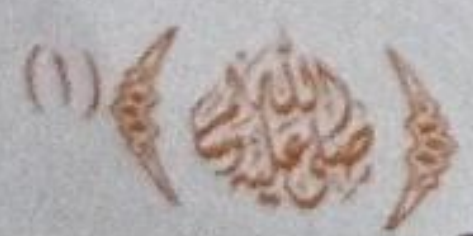 ﴿ صلى الله عليه وسلم ﴾ (١)